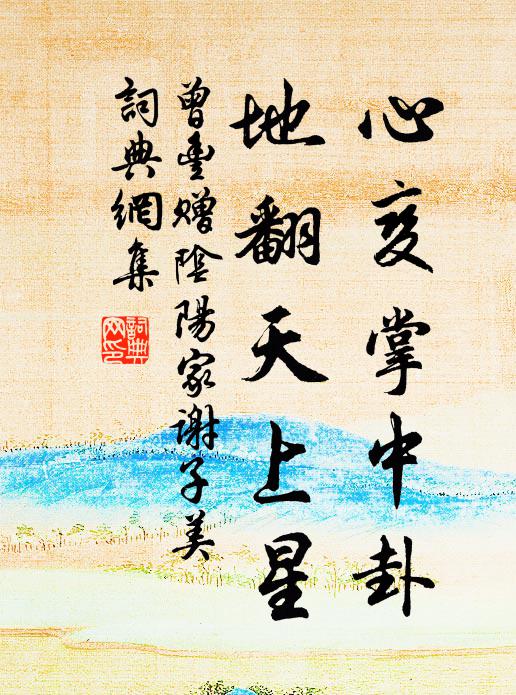 心变掌中卦
地翻天上星
曾豊赠陰陽家谢子美
詞典網集
詞典網印